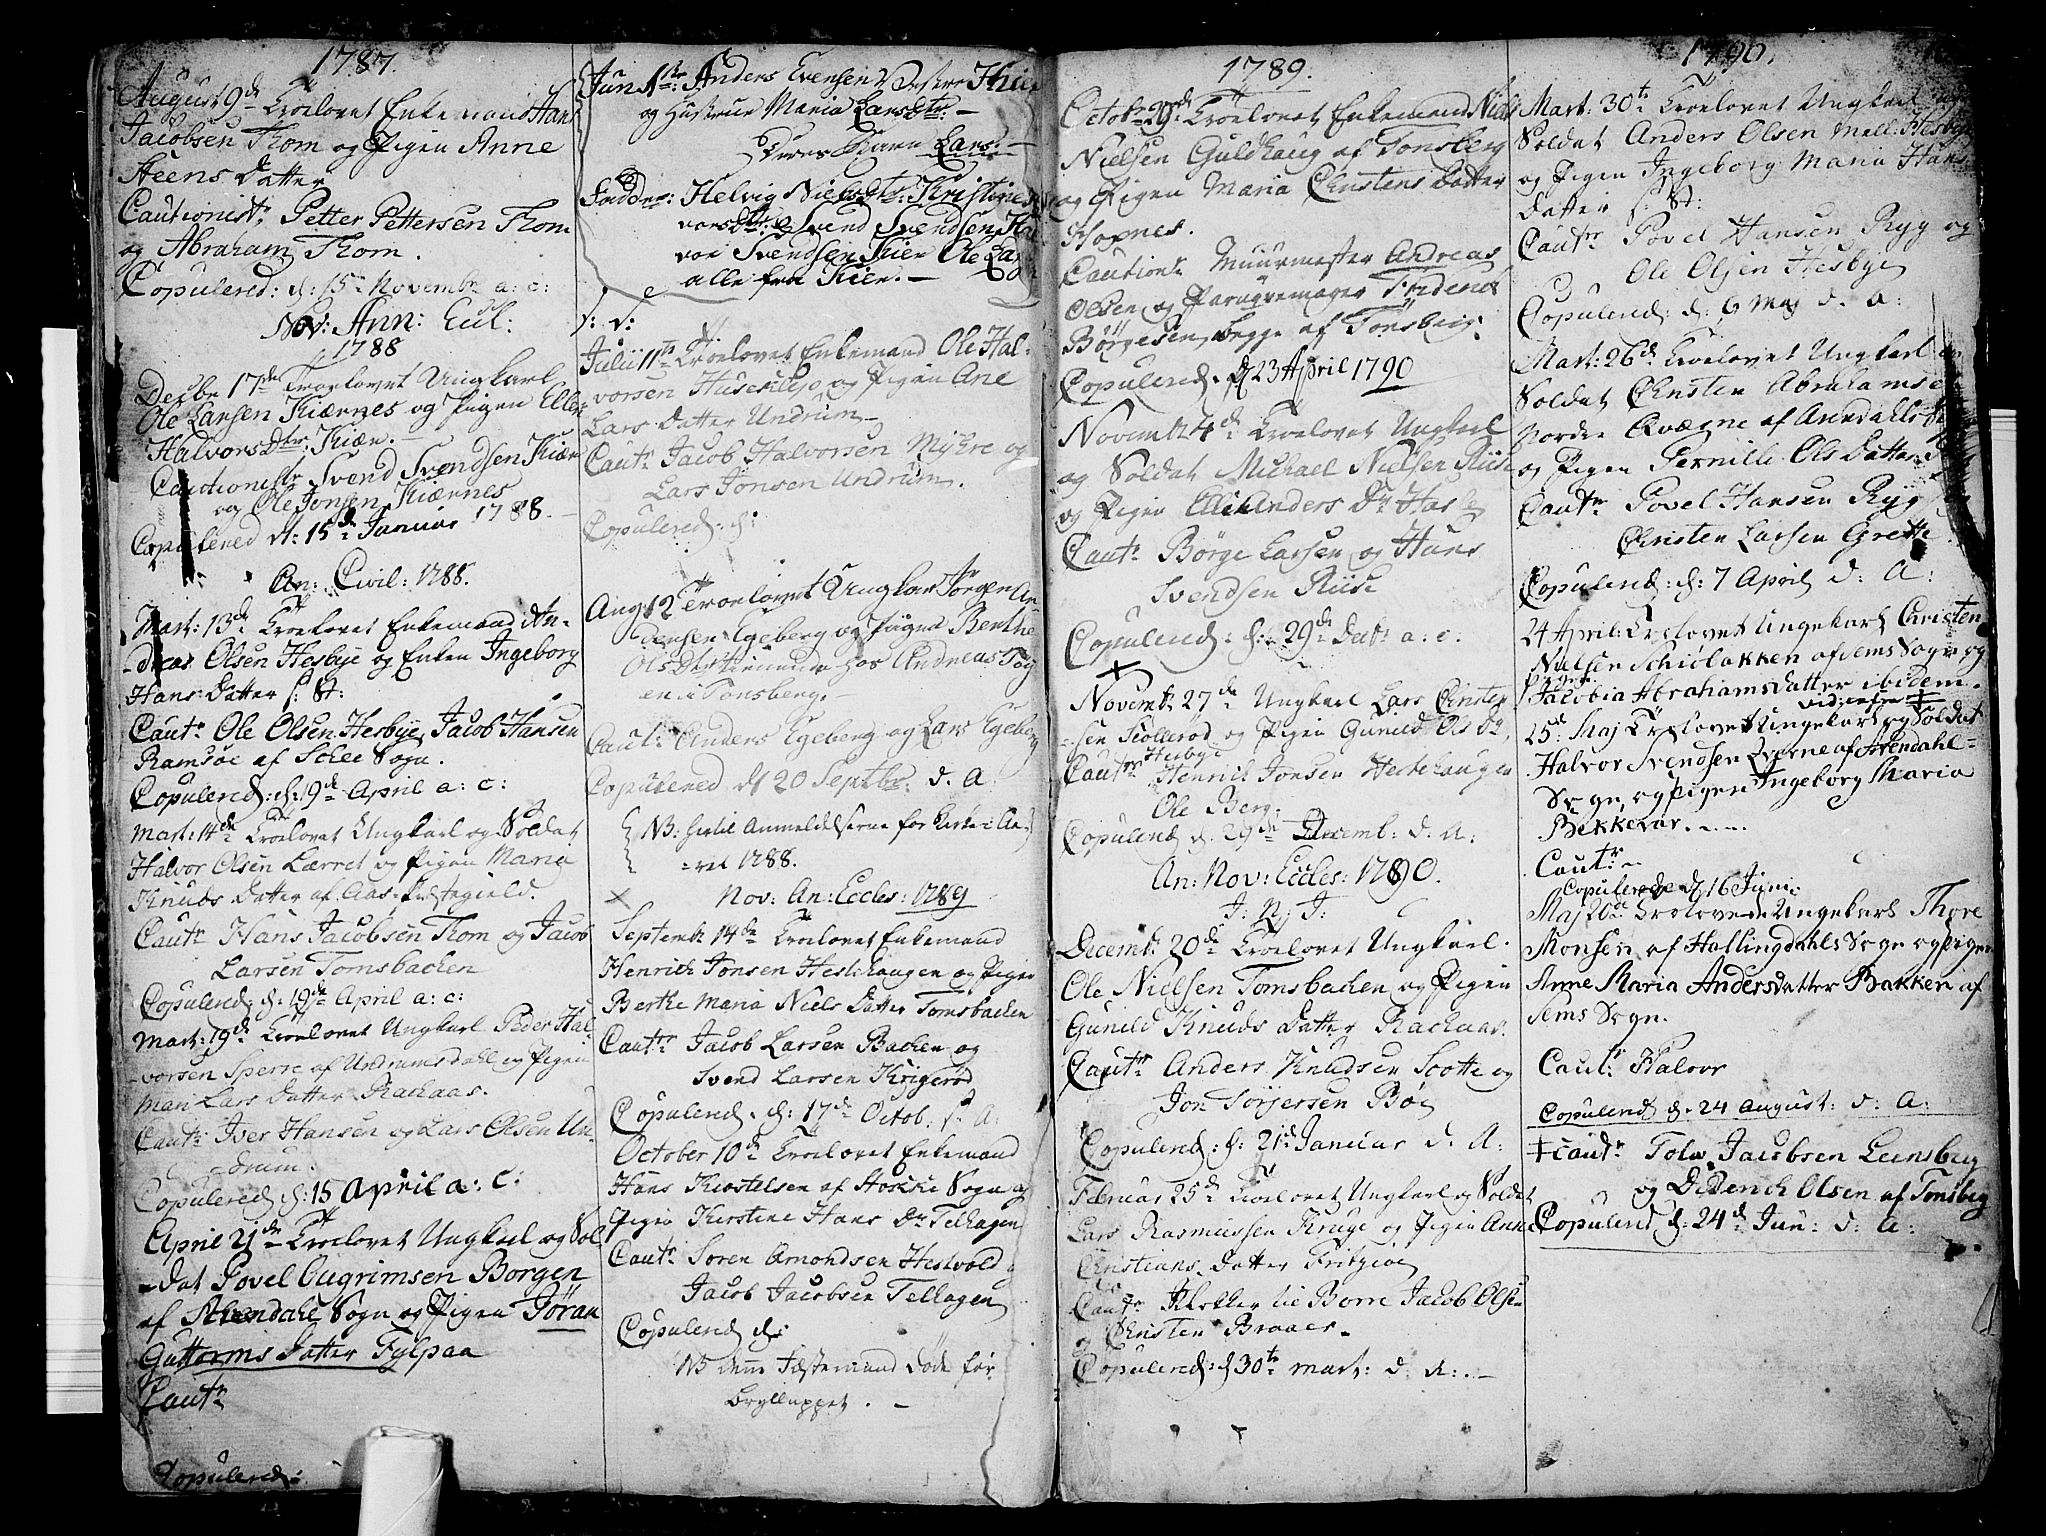 1787.
August 9de Troelovet Enkemand Hans
Jacobsen Thom og Pigen Anne
Steens Datter
Cautionistr. Petter Pettersen Thom
og Abraham Thom.
Copulered: d: 15de Novembr a: c:
Nov: Ann: Eccl:
1788
Decbr 17de Troelovet Ungkarl
Ole Larsen Kiærnes og Pigen Ellen
Halvors Dtr. Kiæn.
Cautionistr Svend Svendsen Kiæn
og Ole Jonsen Kiærnes
Copulered d: 15de Januar 1788.
An: Civil: 1788.
Mart: 13de Troelovet Enkemand An-
dreas Olsen Hesbye og Enken Ingeborg
Hans Datter
Cautr Ole Olsen Hesbye, Jacob Hansen
Ramsøe af Schee Sogn.
Copulered: d: 9de April a: c:
Mart: 14de Troelovet Ungkarl og Soldat
Halvor Olsen Lærret og Pigen Maria
Knuds Datter af Aas Præstegield.
Cautr Hans Jacobsen Thom og Jacob
Larsen Tomsbachen
Copulered: d: 19de April a: c:
Mart: 19de Troelovet Ungkarl Peder Hal-
vorsen Sperre af Undrumsdahl og Pigen
Mari Lars Datter Rachaas.
Cautr Iver Hansen og Lars Olsen Un-
drum.
Copulered d: 15 April a: c:
April 21de Troelovet Ungkarl og Sol-
dat Povel Gugrimsen Borgen
af Arendahl Sogn og Pigen Jöran
Guttorms Datter Fylpaa
Cautr
Copulered:
Jun 1te: Anders Evensen
og Hustrue Maria Lars Dtr: -
Deres Barn Lars.-
Faddere: Helvig Niels Dtr: Kirstine
vors Dtr: Svend Svendsen, Hal
vor Svendsen Kien Ole Lars
alle fra Kien.-
Julii 11te Troelovet Enkemand Ole Hal-
vorsen Huseklep og Pigen Ane
Lars Datter Undrum
Cautr Jacob Halvorsen Myhre og
Lars Jonsen Undrum.
Copulered: d:
Aug 12 Troelovet Ungkar Jörgen An-
dersen Egeberg og Pigen Berthe
Ols Dtr tienende hos Andreas
en i Tonsberg.-
Cautr: Anders Egeberg og Lars Egeberg
Copulered d 20 Septbr: d. A
NB:
1788.
Nov: An: Eccles: 1789
Septembr 14de Troelovet Enkemand
Henrich Jonsen Hestehaugen og Pigen
Berthe Maria Niels Datter Tomsbachen
Cautr Jacob Larsen Bachen og
Svend Larsen Krigeröd
Copulered. d: 17de Octob. d. A:
October 10de Troelovet Enkemand
Hans Kiostelsen af Sogn og
Pigen Kirstine Hans Dr Telhagen
Cautr Soren Amondsen Hestvold
Jacob Jacobsen Telhagen
Copulered d:
NB denne Fæstemand døde før
Brylluppet. -
1789.
Octobr 29de Troelovet Enkemand Niels
Nielsen Guldhaug af Tonsberg
og Pigen Maria Christens Datter
Hoxnes.
Cautionr Muurmester Andreas
Olsen og Paruqvemager Frederich
Börgesen, begge af Tönsberg.
Copulered. d 23 April 1790
Novembr 4de Troelovet Ungkarl
og Soldat Michael Nielsen Riise
og Pigen Ellen Anders Dr Hasle
Cautr Börge Larsen og Hans
Svendsen Riise
Copulered: d: 29de Decbr a: c:
Novembr 27de Ungkarl Lars Christen
sen Scollerod og Pigen Gunild Ols Dr,
Hesbye
Cautr Henrik Jonsen Hestehaugen
Ole Berg.
Copulered d. 29de Decemb: d. A:
An: Nov: Eccles: 1790.
I: N: J:
Decembr 20de Troelovet Ungkarl
Ole Nielsen Tomsbachen og Pigen
Gunild Knuds Datter Rachaas.
Cautr Anders Knudsen Scotte og
Jon Torjersen Böe
Copulered: d: 21de Januar d. A:
Februar 25de Troelovet Ungkarl og Soldat
Lars Rasmussen Kruge og Pigen Anne
Christians Datter Fritzøe
Cautr Klokker til Borre Jacob Olsen
og Christen Braaer.
Copulered: d 30te Mart: d. A: .-
1790.
Mart: 30te Troelovet Ungkarl og
Soldat Anders Olsen Mell: Hesbye
og Pigen Ingeborg Maria Hans
Datter
Cautr Povel Hansen Ryg og
Ole Olsen Hesbye
Copulered: d: 6 Maj d. A:
Mart: 26de Troelovet Ungkarl og
Soldat Christen Abrahamsen
Nordre Qværne af Arendahls
og Pigen Pernille Ols Datter
Cautr Povel Hansen Ryg
Christen Larsen Grette
Copulered: d: 7 April d: A:
24 April: Trolovet Ungekarl Christen
Nielsen Schiölakken af Sems Sogn og
Pigen
Jacobia Abrahams datter ibidem.
vid: infra ‡
25de Maj Trolovet Ungekarl og Soldat
Halvor Svendsen Qværne af Arendahl=
Sogn, og Pigen Ingeborg Maria
Bekkevar. ....
Cautr
Copulerede d 16 Juni:
Maj 20de Trolovede Ungekarl Thore
Monsen af Hallingdahls Sogn og Pigen
Anne Maria Andersdatter Bakken af
Sems Sogn.
Cautr Halvor
Copulered d. 24 August: d. A:
‡ Cautr Tolv Jacobsen Leensberg
og Diderich Olsen af Tonsberg
Copulered d: 24de Jun: d. A: